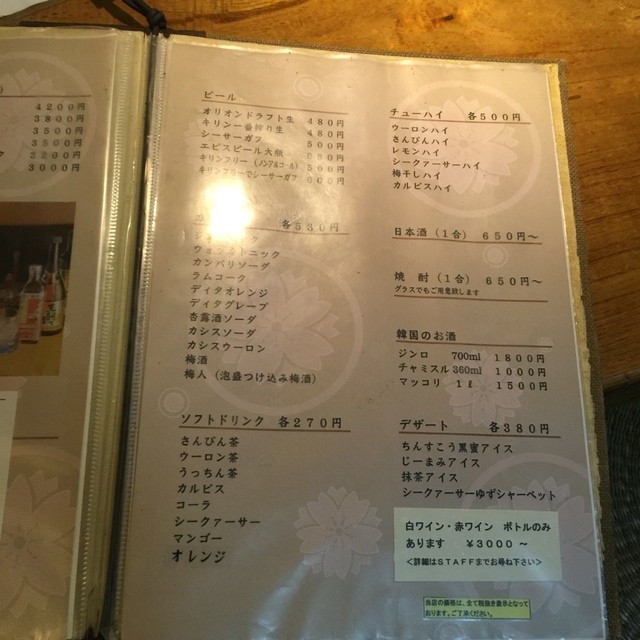 4200円
3800円
3500円
3500円
2200円
3000円
ビール
オリオンドラフト生 480円
キリン一番搾り生 480円
シーサーガフ 500円
エビスビール大瓶
キリンフリー(ノンアルコール)
キリンフリーでシーサーガフ
各530円
カンパリソーダ
ラムコーク
ディタオレンジ
ディタグレープ
杏露酒ソーダ
カシスソーダ
カシスウーロン
梅酒
梅人(泡盛つけ込み梅酒)
ソフトドリンク 各270円
さんぴん茶
ウーロン茶
うっちん茶
カルピス
コーラ
シークァーサー
マンゴー
オレンジ
チューハイ 各500円
ウーロンハイ
さんぴんハイ
レモンハイ
シークァーサーハイ
梅干しハイ
カルピスハイ
日本酒(1合) 650円~
焼 酎(1合) 650円~
グラスでもご用意致します
韓国のお酒
ジンロ 700ml 1800円
チャミスル 360ml 1000円
マッコリ 1ℓ 1500円
デザート 各380円
ちんすこう黒蜜アイス
じーまみアイス
抹茶アイス
シークァーサーゆずシャーベット
白ワイン・赤ワイン ボトルのみ
あります ¥3000 ~
<詳細はSTAFFまでお尋ね下さい>
当店の価格は、全て税抜き表示となって
おります。ご了承ください。